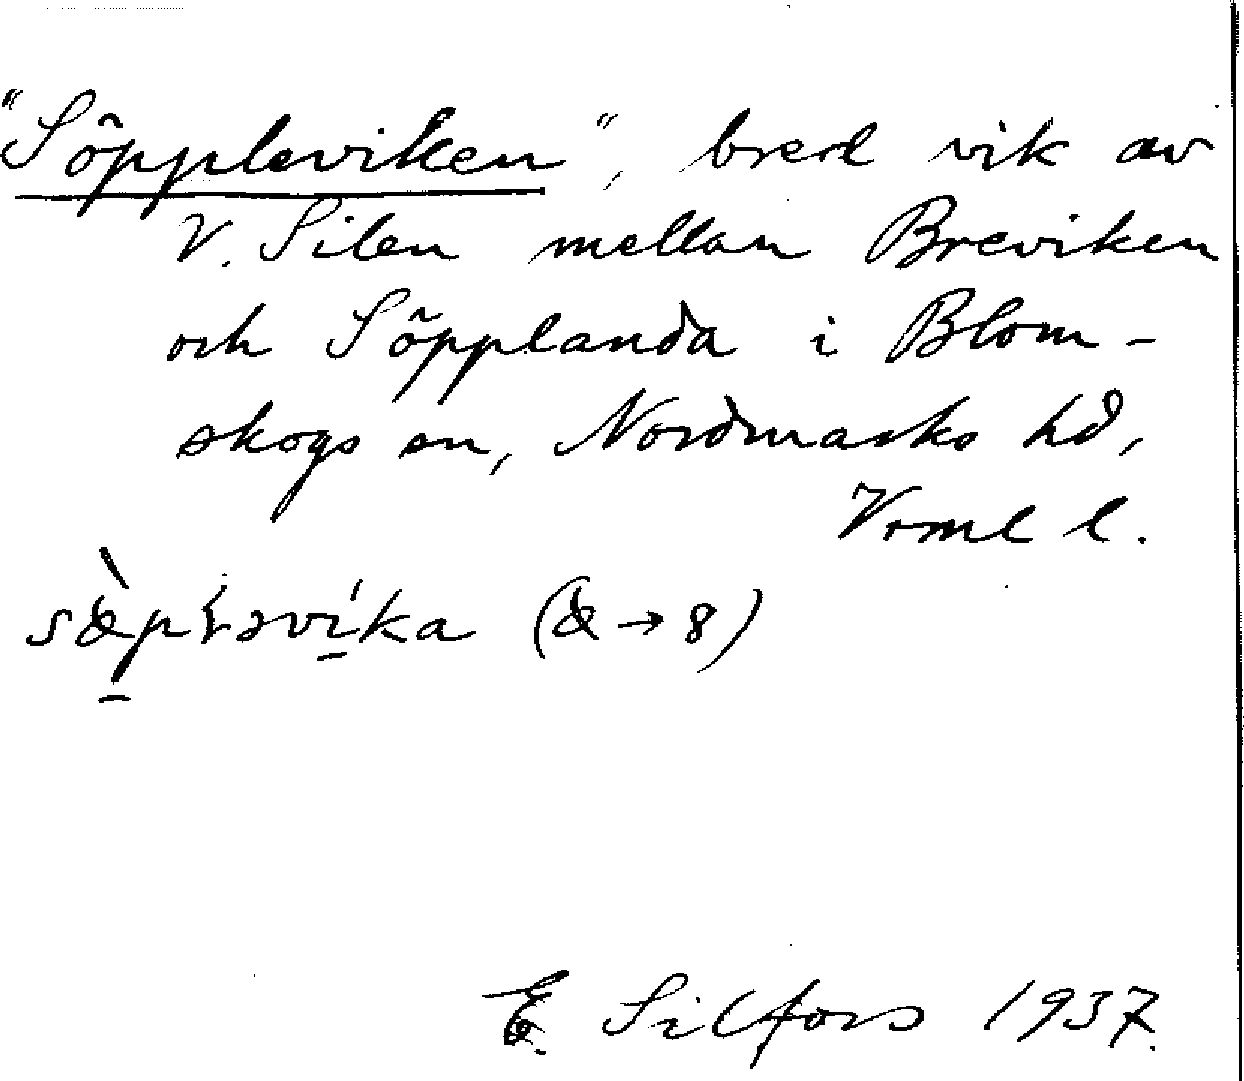 "Söppleviken", bred vik av
V. Silen mellan Breviken
och Söpplanda i Blom-
skogs sn, Nordmarks hd,
Vrml l.
(æ → 8)
E. Silfors 1937.